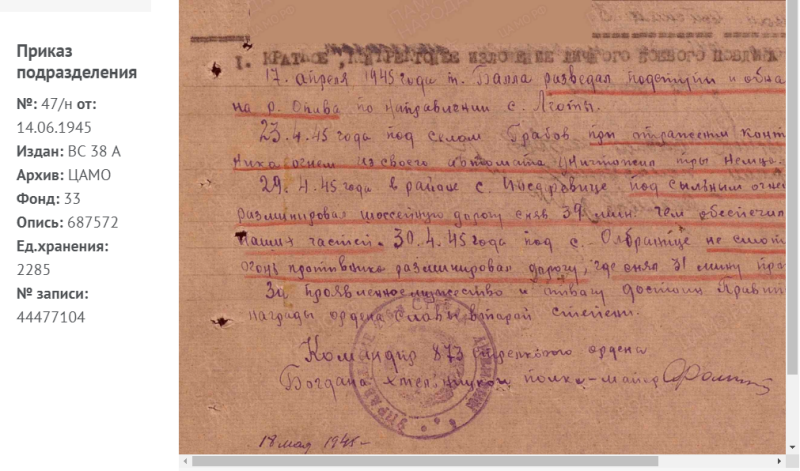 Приказ
подразделения
№: 47/н от:
14.06.1945
Издан: ВС 38 А
Архив: ЦАМО
Фонд: 33
Опись: 687572
Ед.хранения:
2285
№ записи:
44477104
I. КРАТКОЕ, КОНКРЕТНОЕ ИЗЛОЖЕНИЕ ЛИЧНОГО БОЕВОГО ПОДВИГА
17. апреля 1945 года т. Балла разведал подступы и обна
на р. Опава по направлении с.
23.4.45 года под селом Грабов при отражении конт
из своего автомата уничтожил три немца.
29.4.45 года в районе с. под сильным огнем
разминировал шоссейную дорогу сняв 39 мин чем обеспечил
наших частей. 30.4.45 года под с. не смот
огонь противника разминировал дорогу, где снял 31 мину про
За проявленное мужество и отвагу достоин правит
награды ордена Славы второй степени.
Командир 873 стрелкового ордена
Богдана Хмельницкого полка - майор
18 мая 1945